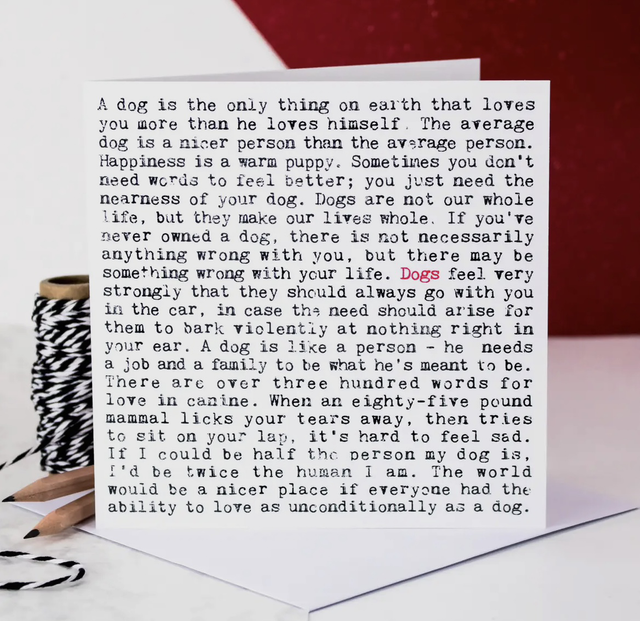 A dog is the only thing on earth that loves
you more than he loves himself. The average
dog is a nicer person than the average person.
Happiness is a warm puppy. Sometimes you don't
need words to feel better; you just need the
nearness of your dog. Dogs are not our whole
life, but they make our lives whole. If you've
never owned a dog, there is not necessarily
anything wrong with you, but there may be
something wrong with your life. Dogs feel very
strongly that they should always go with you
in the car, in case the need should arise for
them to bark violently at nothing right in
your ear. A dog is like a person - he needs
a job and a family to be what he's meant to be.
There are over three hundred words for
love in canine. When an eighty-five pound
mammal licks your tears away, then tries
to sit on your lap, it's hard to feel sad.
If I could be half the person my dog is,
I'd be twice the human I am. The world
would be a nicer place if everyone had the
ability to love as unconditionally as a dog.